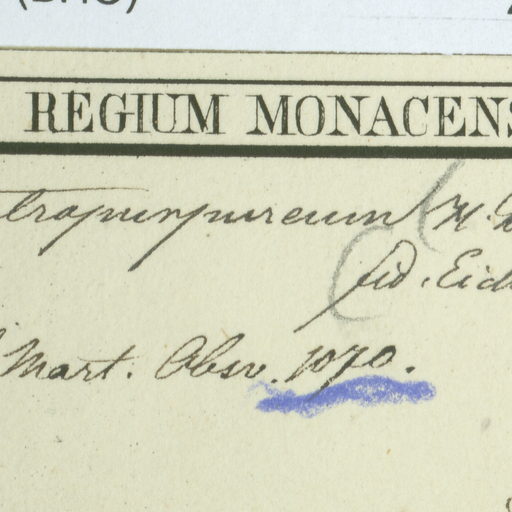 REGIUM MONACENS
tropurpureum H.
fid. Eich
Mart. Obsv. 1070.